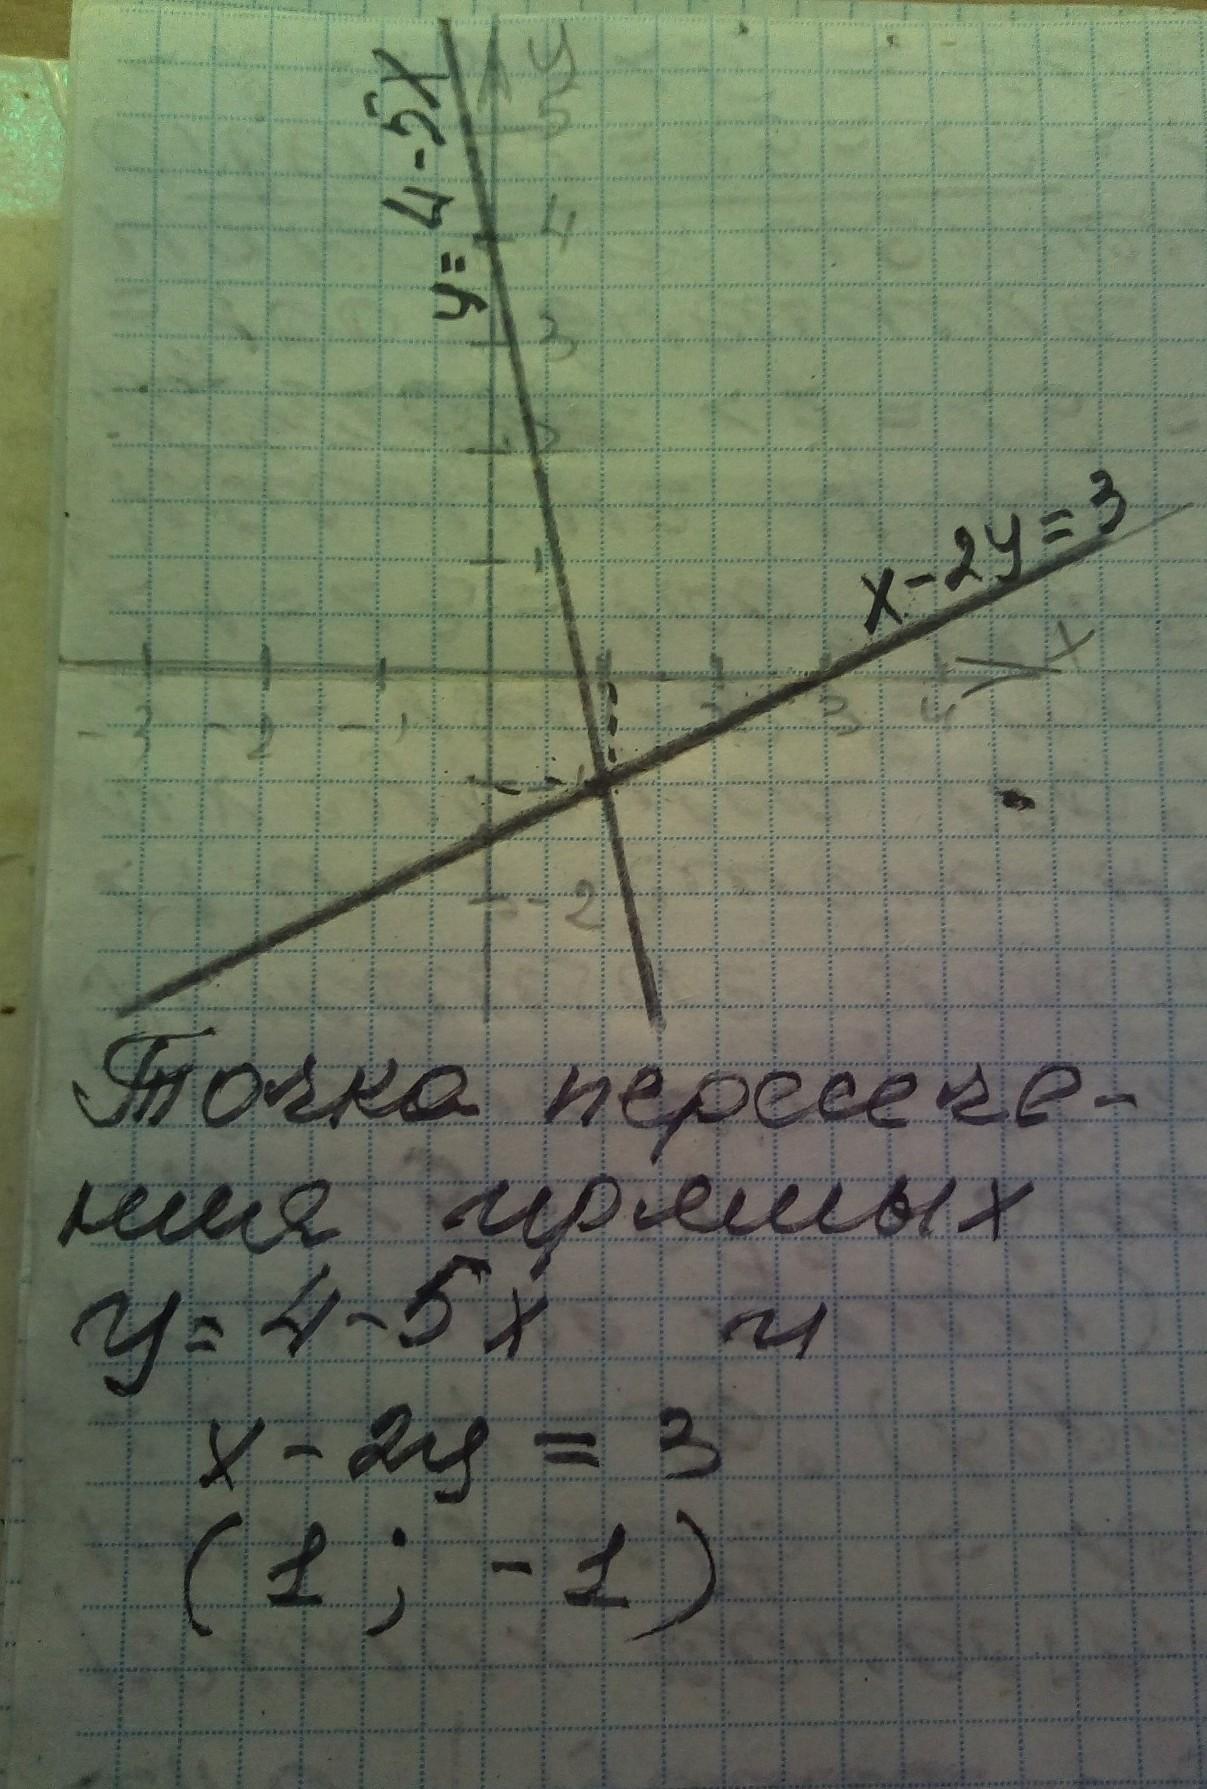 y
5
y = 4 - 5x
4
3
2
1
x - 2y = 3
x
-3 -2 -1 2 3 4
-1
-2
Точка пересече-
ния прямых
y = 4 - 5x и
x - 2y = 3
(1; -1)